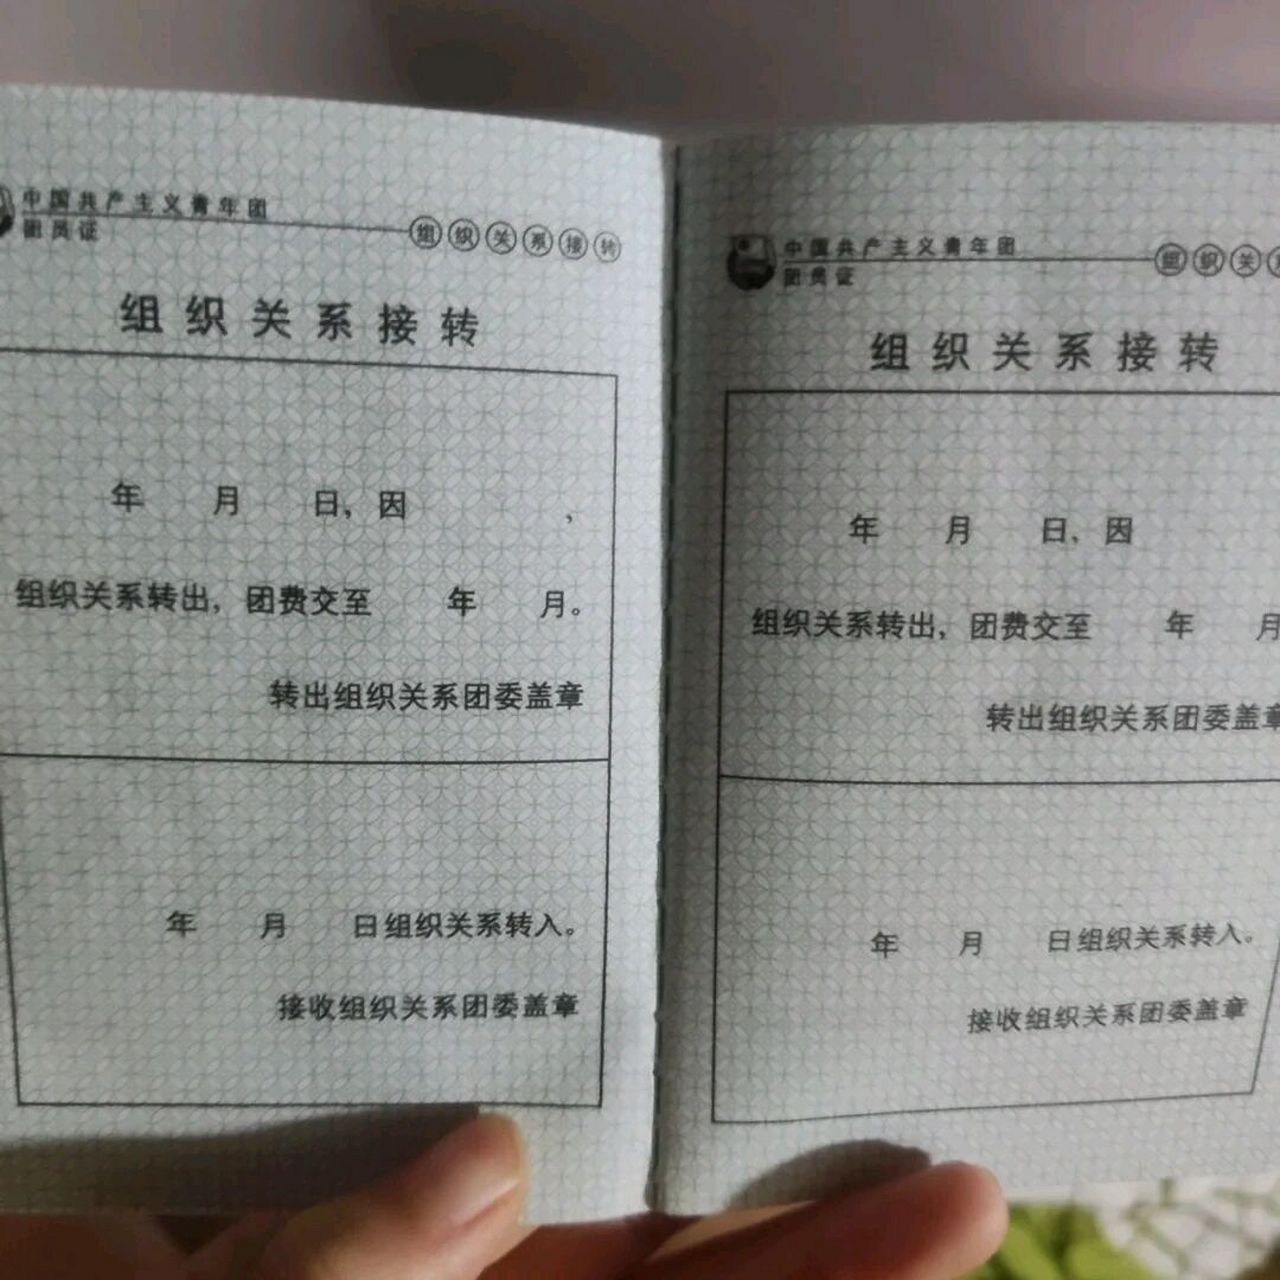 中国共产主义青年团
团员证
组织关系接转
组织关系接转
年 月 日，因 ，
组织关系转出，团费交至 年 月。
转出组织关系团委盖章
年 月 日组织关系转入。
接收组织关系团委盖章
中国共产主义青年团
团员证
组织关
组织关系接转
年 月 日，因
组织关系转出，团费交至 年 月
转出组织关系团委盖章
年 月 日组织关系转入。
接收组织关系团委盖章